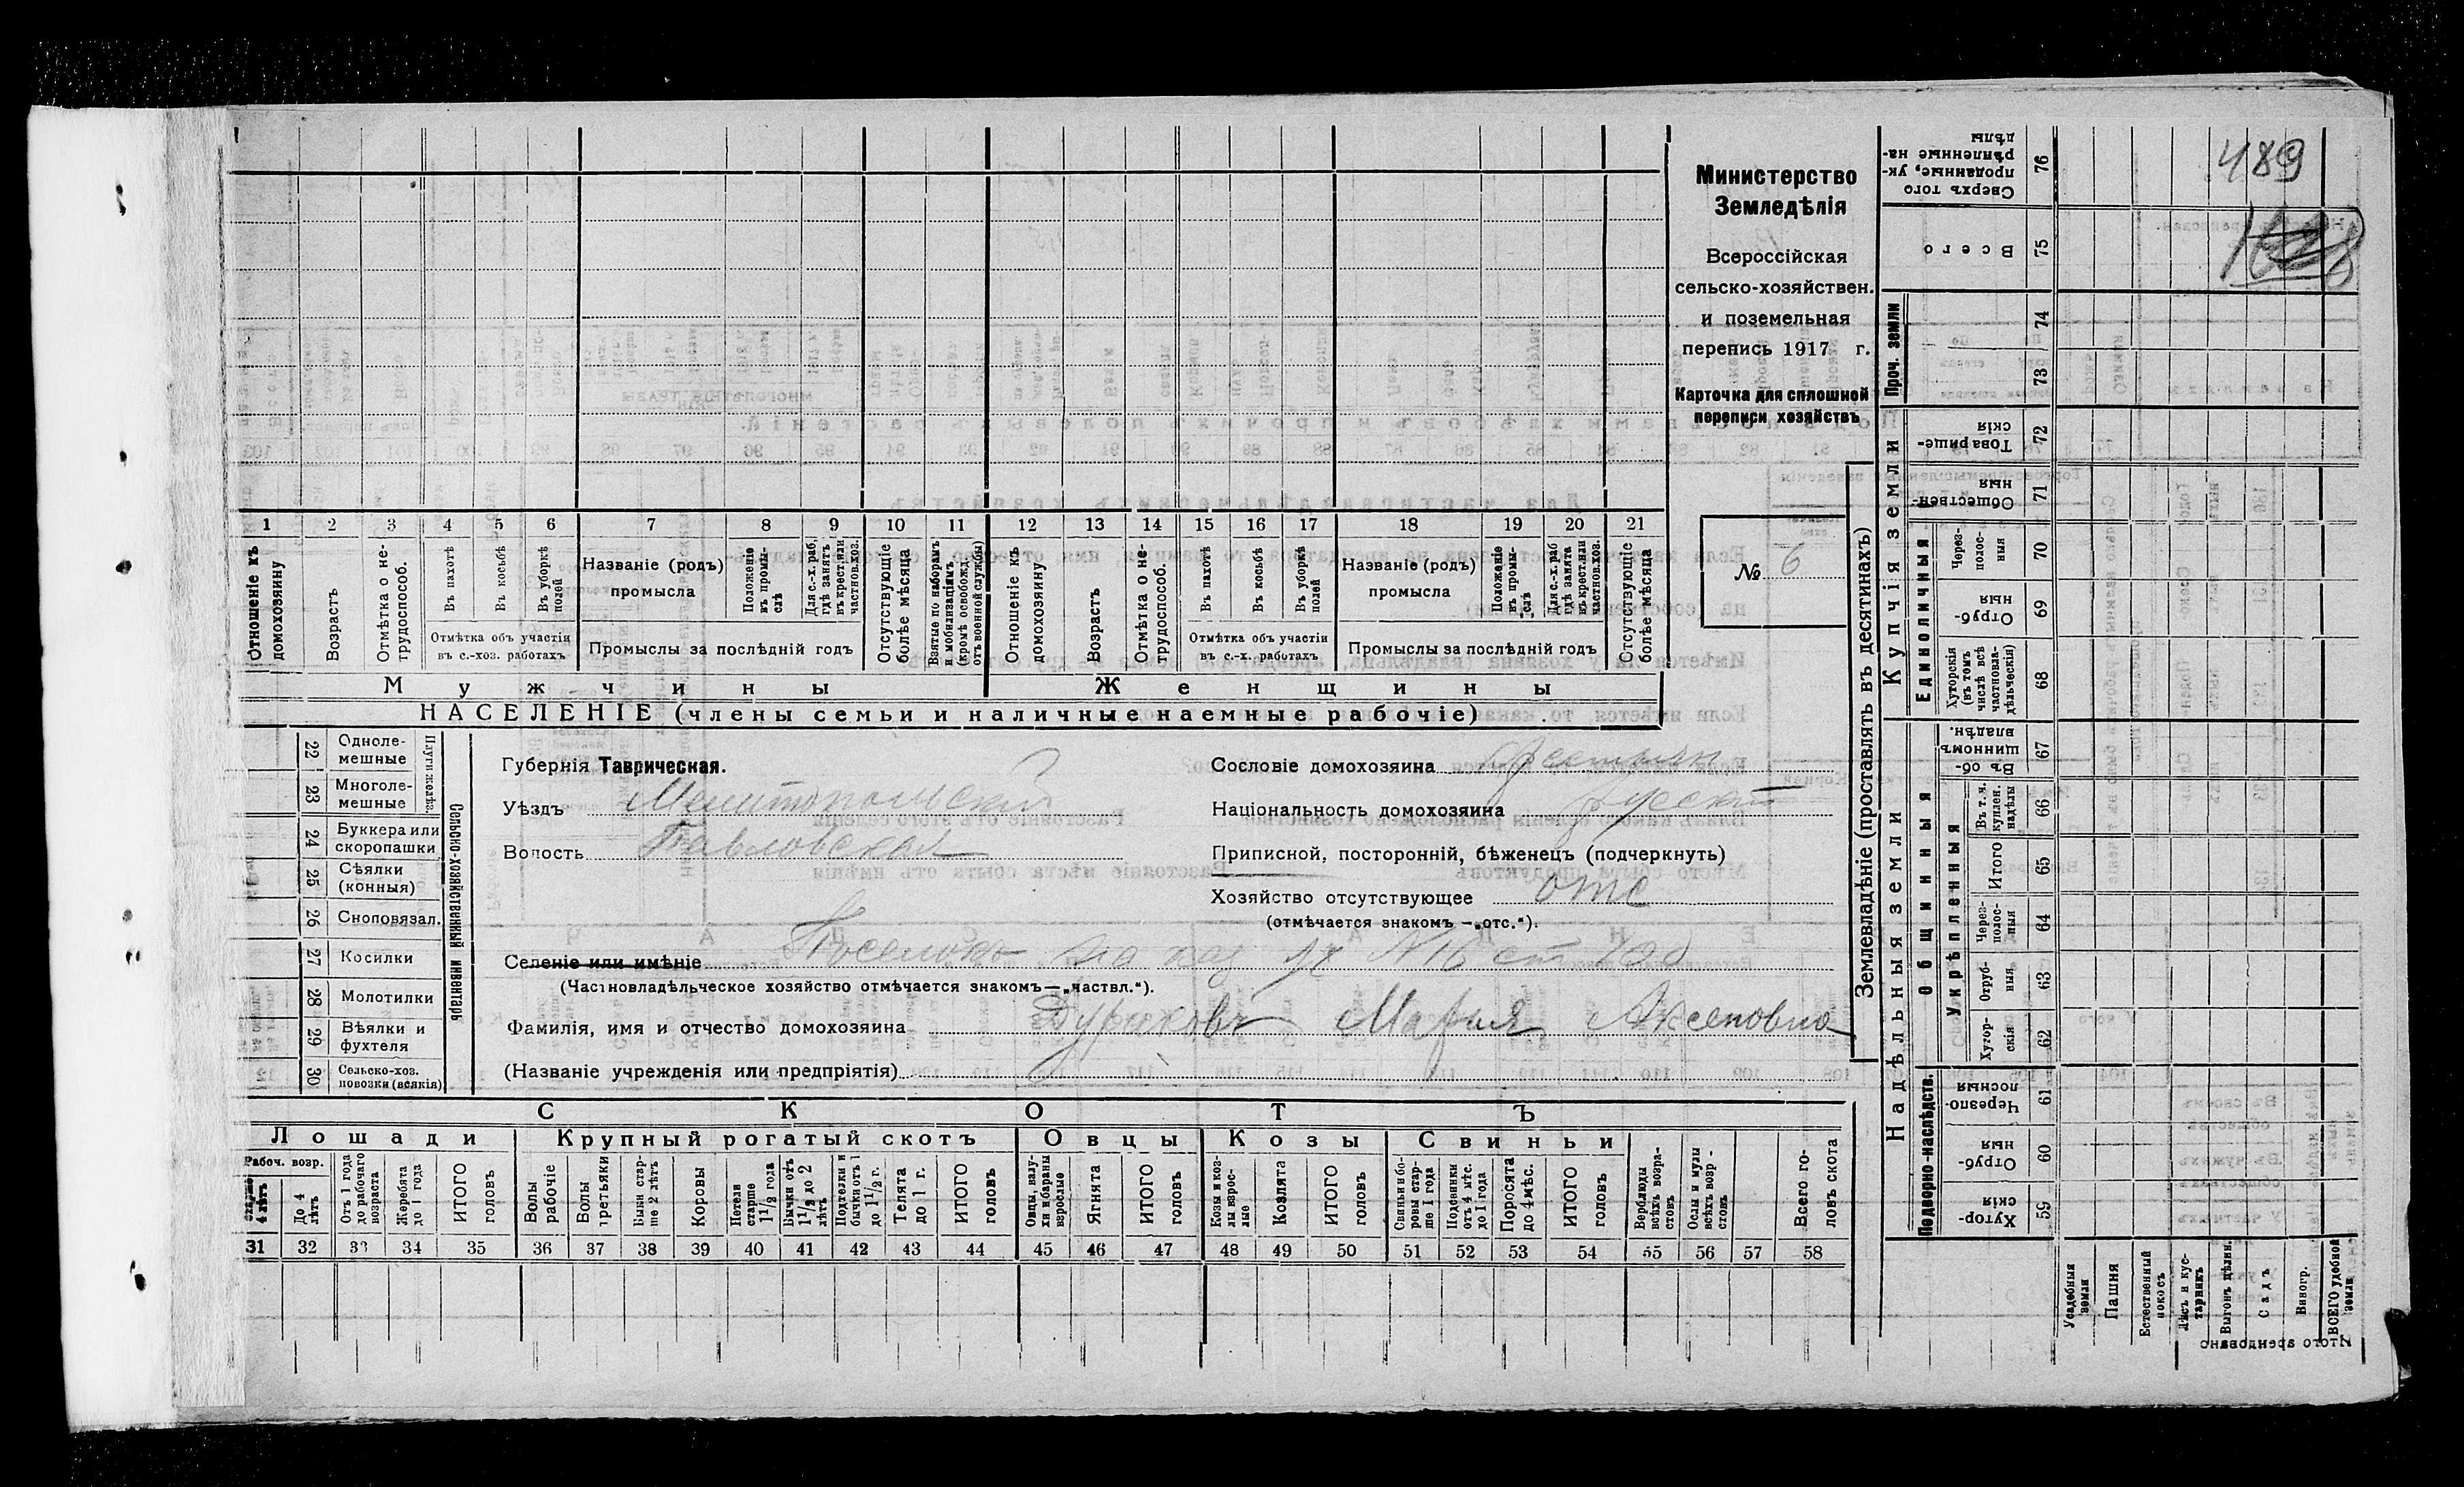 489
Министерство
Земледѣлія
Всероссійская
сельско-хозяйствен.
и поземельная
перепись 1917 г.
Карточка для сплошной
переписи хозяйствъ
№ 6
1 2 3 4 5 6 7 8 9 10 11 12 13 14 15 16 17 18 19 20 21
Отношеніе къ домохозяину
Возрастъ
Отмѣтка о не-трудоспособ.
Въ пахотѣ
Въ косьбѣ
Въ уборкѣ полей
Отмѣтка объ участіи
въ с.-хоз. работахъ
Названіе (родъ)
промысла
Положеніе въ промы-слѣ
Для с.-х. раб. гдѣ занятъ въ крест. или частнов. хоз.
Промыслы за послѣдній годъ
Отсутствующіе болѣе мѣсяца
Взятые по наборамъ и мобилизаціямъ (кромѣ освобожд. отъ военной службы)
Отношеніе къ домохозяину
Возрастъ
Отмѣтка о не-трудоспособ.
Въ пахотѣ
Въ косьбѣ
Въ уборкѣ полей
Отмѣтка объ участіи
въ с.-х. работахъ
Названіе (родъ)
промысла
Положеніе въ промы-слѣ
Для с.-х. раб гдѣ занята въ крест. или частнов. хоз.
Промыслы за послѣдній годъ
Отсутствующіе болѣе мѣсяца
Мужчины Женщины
НАСЕЛЕНІЕ (члены семьи и наличные наемные рабочіе)
22 Однолемешные
23 Многолемешные
Плуги желѣз.
24 Буккера или скоропашки
25 Сѣялки (конныя)
26 Сноповязал.
27 Косилки
28 Молотилки
29 Вѣялки и фухтеля
30 Сельско-хоз. повозки (всякія)
Сельско-хозяйственный инвентарь
Губернія Таврическая.
Уѣздъ Мелитопольскій
Волость Павловская
Сословіе домохозяина крестьян
Національность домохозяина русская
Приписной, посторонній, бѣженецъ (подчеркнуть)
Хозяйство отсутствующее отс
(отмѣчается знакомъ —„отс.“).
Селеніе или имѣніе Поселокъ на каз уч №16
(Частновладѣльческое хозяйство отмѣчается знакомъ—„частвл.“).
Фамилія, имя и отчество домохозяина Дураковъ Марія Аксеновна
(Названіе учрежденія или предпріятія)
СКОТЪ
Лошади Крупный рогатый скотъ Овцы Козы Свиньи
Рабоч. возр.
4 лѣтъ
До 4 лѣтъ
Отъ 1 года до рабочаго возраста
Жеребята до 1 года
ИТОГО головъ
Волы рабочіе
Волы третьяки
Быки стар-ше 2 лѣтъ
Коровы
Нетели старше 1 1/2 года
Бычки отъ 1 1/2 до 2 лѣтъ
Подтелки и бычки отъ 1 до 1 1/2 г.
Телята до 1 г.
ИТОГО головъ
Овцы, валу-хи и бараны взрослые
Ягнята
ИТОГО головъ
Козы и коз-лы взрос-лые
Козлята
ИТОГО головъ
Свиньи и бо-ровы стар-ше 1 года
Подсвинки отъ 4 мѣс. до 1 года
Поросята до 4 мѣс.
ИТОГО головъ
Верблюды всѣхъ возра-стовъ
Ослы и мулы всѣхъ возр-стовъ
Всего го-ловъ скота
31 32 33 34 35 36 37 38 39 40 41 42 43 44 45 46 47 48 49 50 51 52 53 54 55 56 57 58
Землевладѣніе (проставлять въ десятинахъ)
Купчія земли
Надѣльныя земли
Сверхъ того проданные, ук-рѣпленные на-дѣлы 76
Всего 75
Проч. земли 74
73
Товарище-скія 72
Обществен-ныя 71
Единоличныя
Черезполос-ныя 70
Отруб-ныя 69
Хуторскія (въ томъ числѣ всѣ частновла-дѣльческія) 68
Общинныя
Въ об-щинномъ владѣн. 67
Укрѣпленныя
Въ т. ч. куплен. надѣлы 66
Итого 65
Через-полос-ныя 64
Отруб-ныя 63
Хутор-скія 62
Подворно-наслѣдств.
Черезпо-лосныя 61
Отруб-ныя 60
Хутор-скія 59
Усадебныя земли
Пашня
Естественный покосъ
Лѣсъ и кус-тарникъ
Выгонъ цѣлин.
Садъ
Виногр.
ВСЕГО удобной земли
Итого арендовано